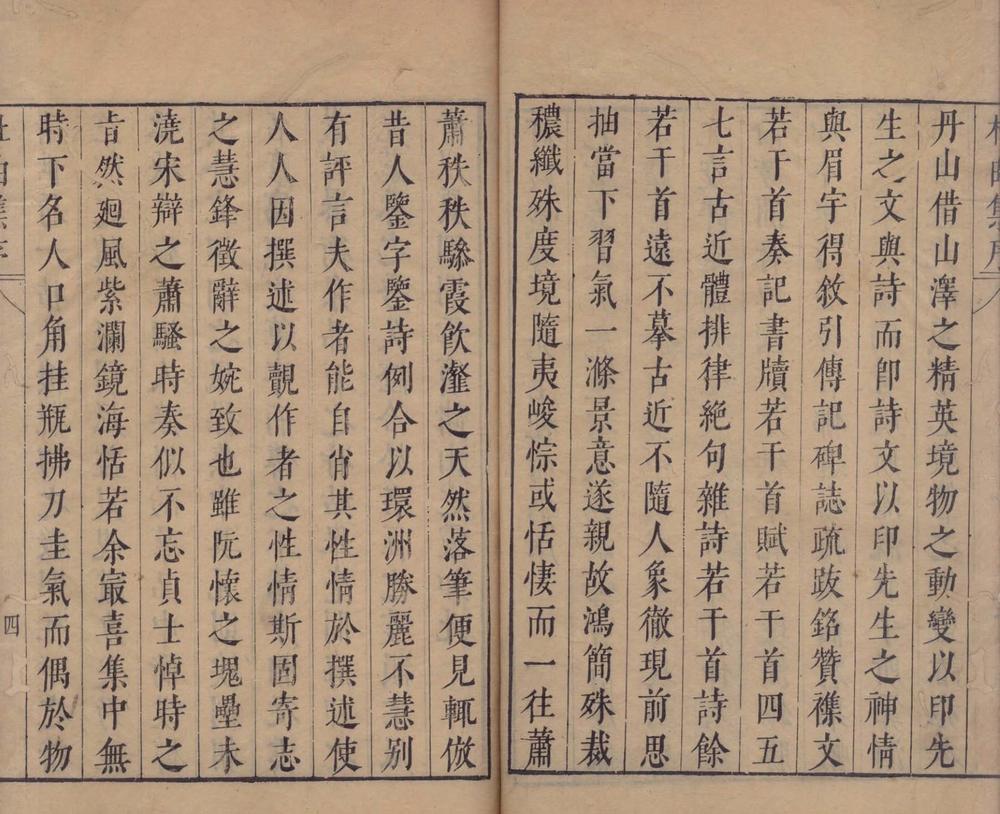 丹山借山澤之精英境物之動變以印先
生之文與詩而卽詩文以印先生之神情
與眉宇得敘引傳記碑誌疏跋銘贊襍文
若干首奏記書牘若干首賦若干首四五
七言古近體排律絕句雜詩若干首詩餘
若干首遠不摹古近不隨人象徹現前思
抽當下習氣一滌景意遂親故鴻簡殊裁
穠纖殊度境隨夷峻悰或恬悽而一往蕭
蕭秩秩驂霞飲瀣之天然落筆便見輒倣
昔人鑒字鑒詩例合以環洲勝麗不慧別
有評言夫作者能自肖其性情於撰述使
人人因撰述以覿作者之性情斯固寄志
之慧鋒徵辭之婉致也雖阮懷之塊壘未
澆宋辯之蕭騷時奏似不忘貞士悼時之
旨然廻風紫瀾鏡海恬若余寂喜集中無
時下名人口角挂瓶拂刀圭氣而偶於物
四